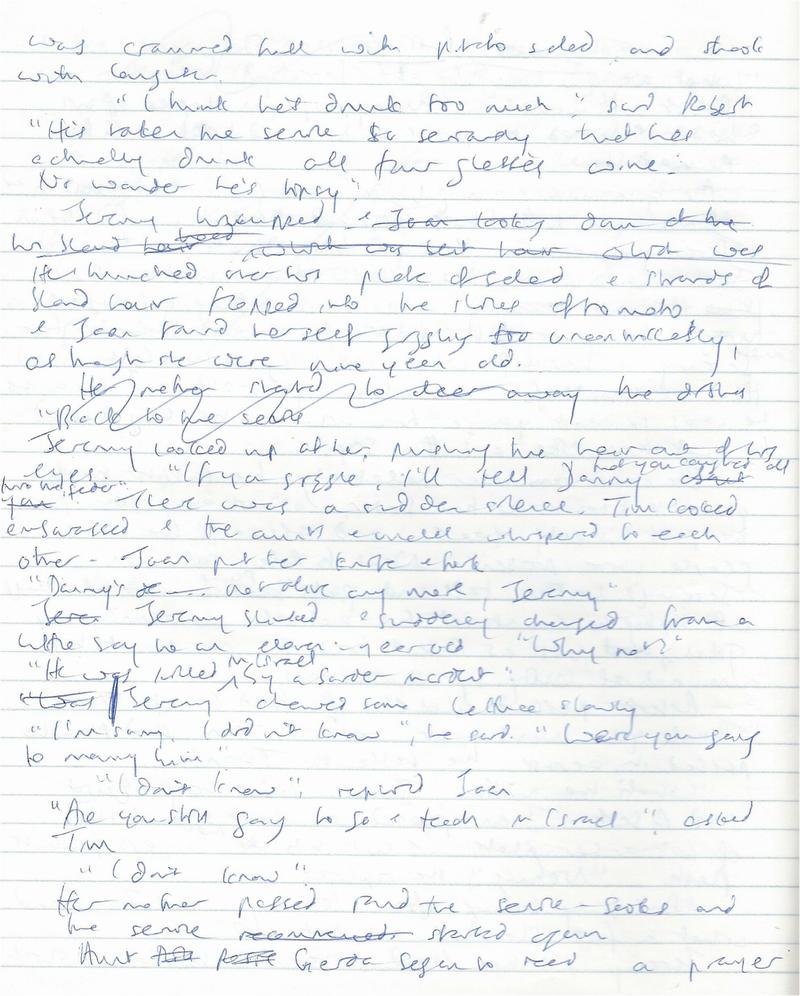 was crammed full with potato salad and shook
with laughter.
"I think he's drunk too much", said Robert
"He's taken the service so seriously that he's
actually drunk all four glasses wine.
No wonder he's tipsy".
Jeremy & Joan looking down at the
his blond which was bent which was
He hunched over his plate of salad & strands of
blond hair flopped into the slices of tomato,
& Joan found herself giggling too uncontrollably,
as though she were nine years old.
Her mother started to clear away the dishes
"Back to the service
Jeremy looked up at her, pushing the hair out of his
eyes. "If you giggle, I'll tell Danny that you laughed all
through seder". There was a sudden silence. Tim looked
embarrassed & the aunts & uncles whispered to each
other - Joan put her knife & fork
"Danny's not alive any more, Jeremy"
Jere Jeremy blinked & suddenly changed from a
little boy to an eleven-year old "Why not?"
"He was killed in Israel by a border incident".
"Was Jeremy chewed some lettuce slowly
"I'm sorry. I didn't know", he said. "Were you going
to marry him"
"I don't know", replied Joan
"Are you still going to go & teach in Israel", asked
Tim
"I don't know".
Her mother passed round the service-books and
the service recommenced started again
Aunt Gerda began to read a prayer